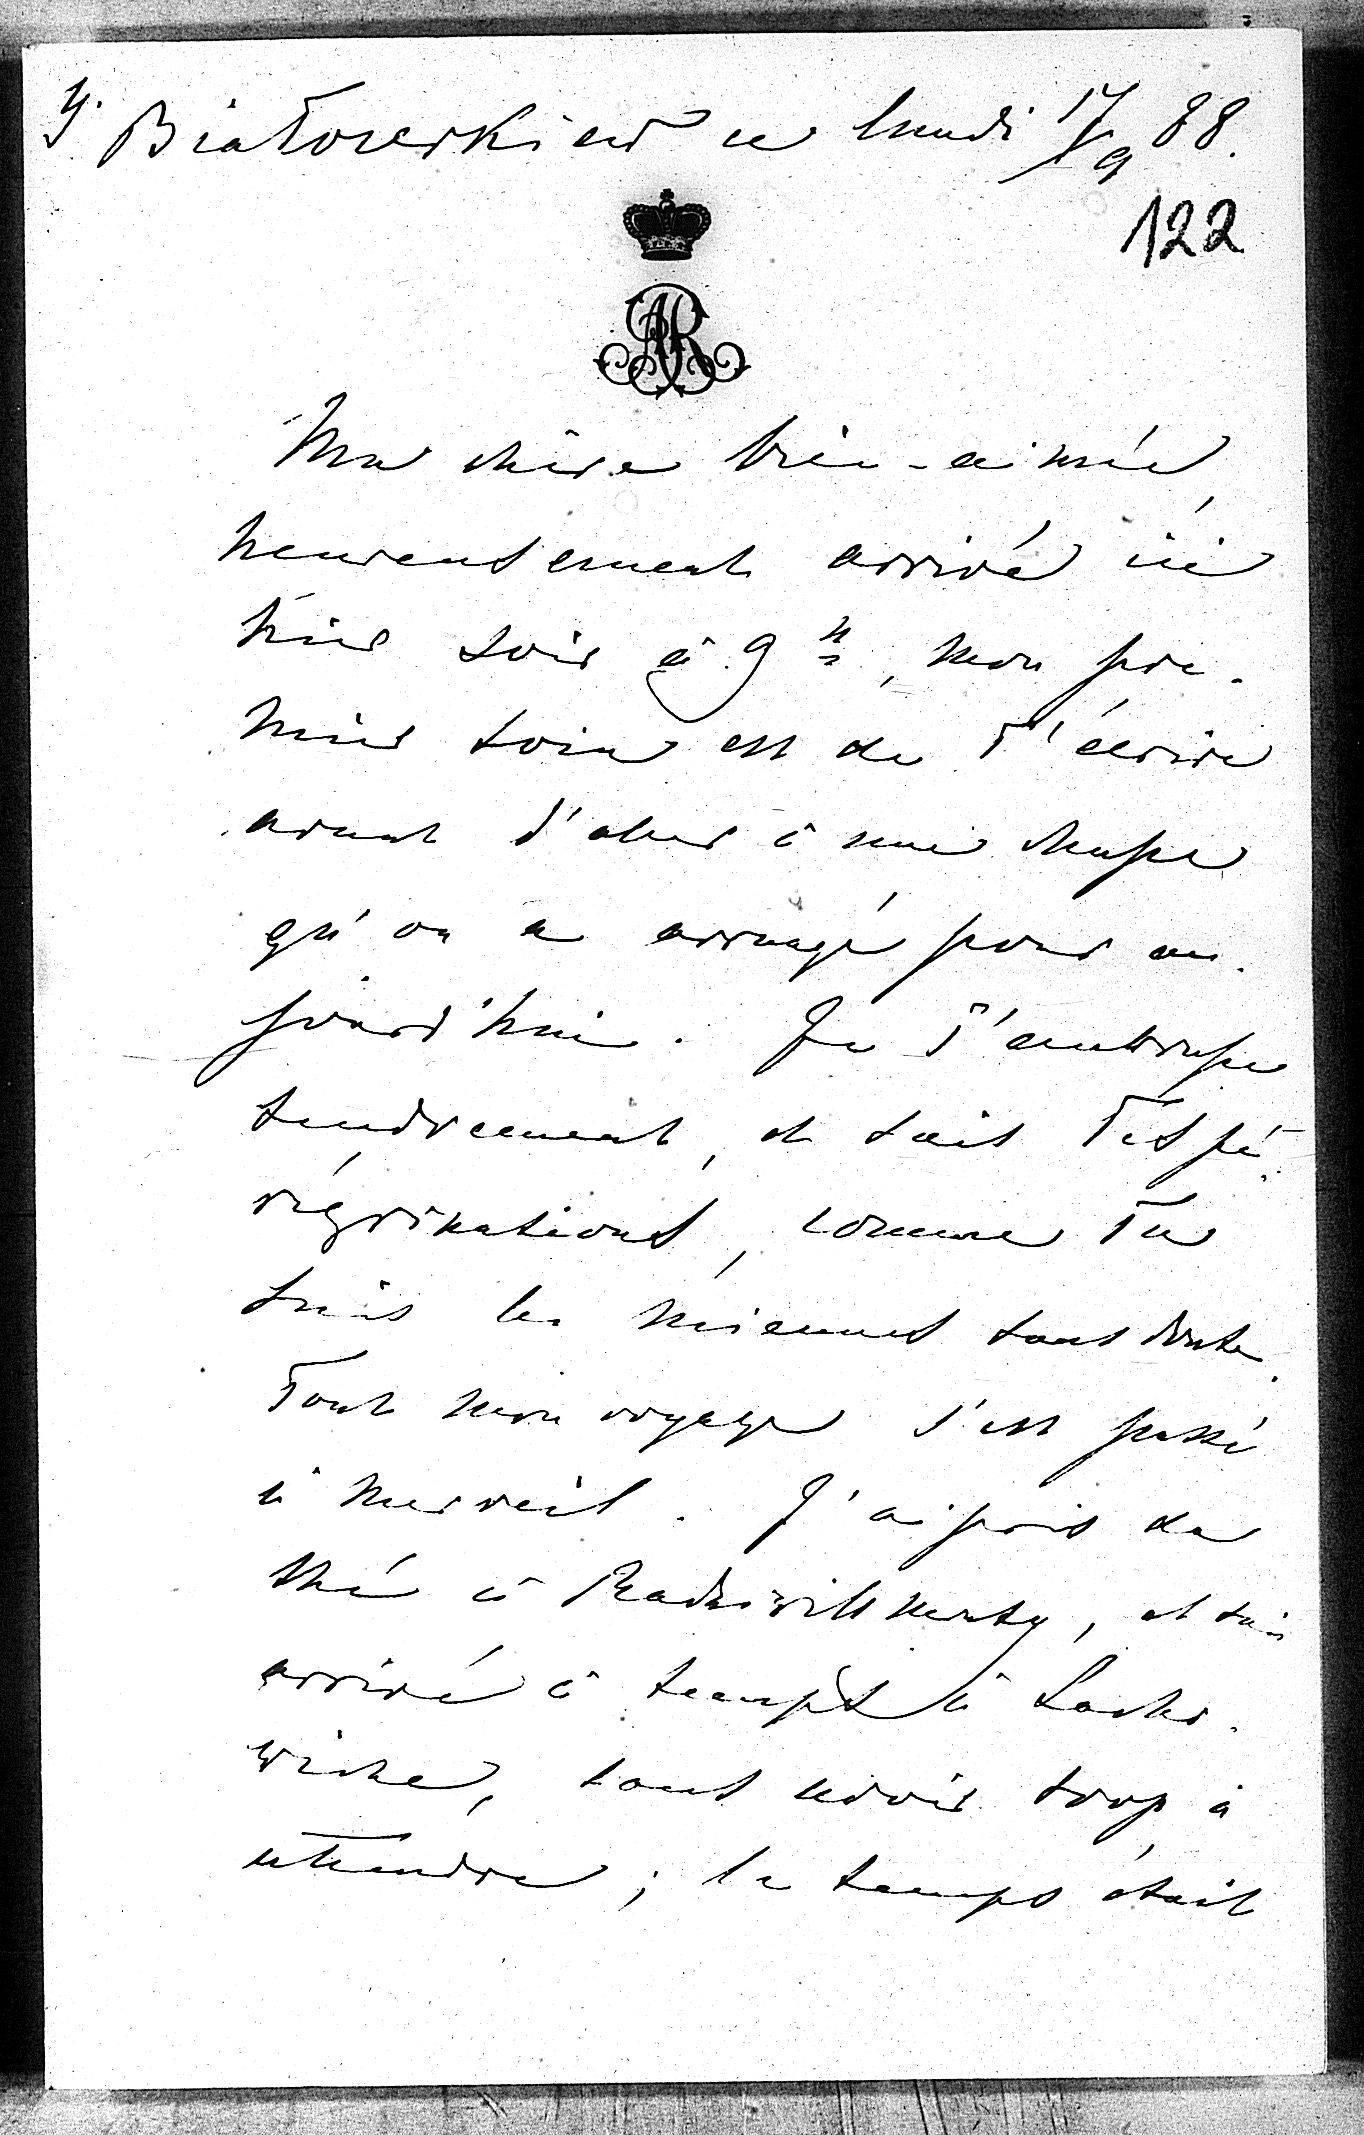 Białocerkiew ce lundi 17/9 88.
122
AR
Ma chère bien-aimée,
heureusement arrivé ici
hier soir à 9 h, mon pre-
mier soin est de T'écrire
avant d'aller à une chasse
qu'on a arrangé pour au-
jourd'hui. Je T'embrasse
tendrement, et suis Tes pé-
régrinations, comme Tu
suis les miennes sans doute.
Tout mon voyage s'est passé
à merveil. J'ai pris du
thé à Radziwillmonty, et suis
arrivé à temps à
sans avoir trop à
attendre; le temps était